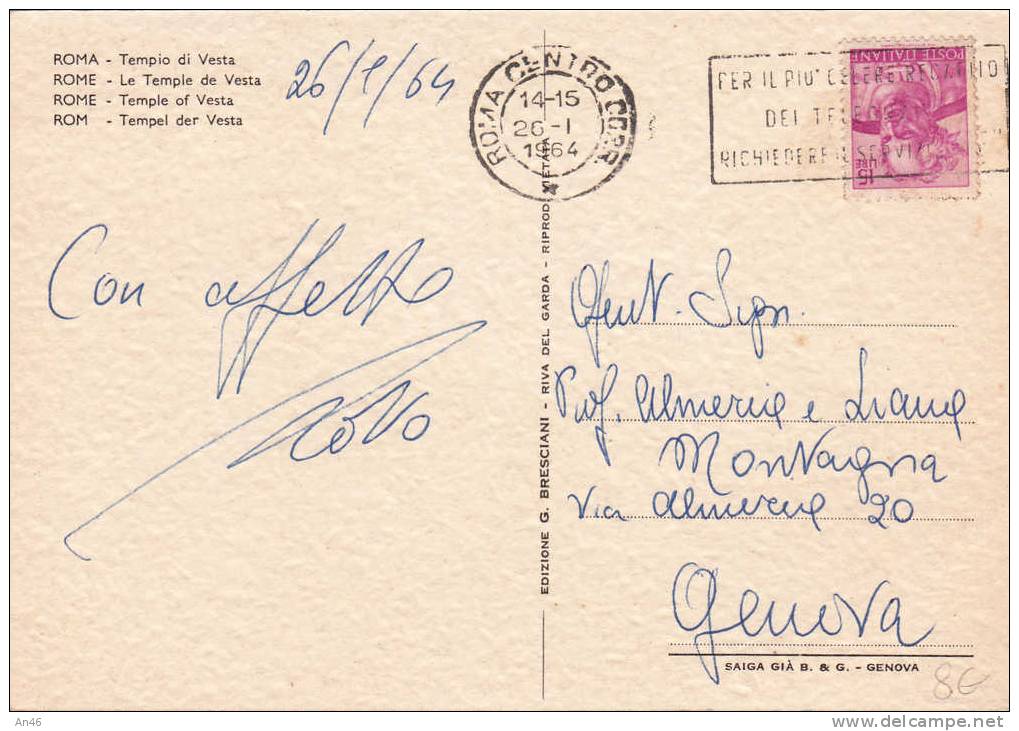 ROMA - Tempio di Vesta
ROME - Le Temple de Vesta
ROME - Temple of Vesta
ROM - Tempel der Vesta
26/1/64
ROMA CENTRO CORR.
14-15
26-I
1964
PER IL PIU' CELERE
DEI
RICHIEDERE IL SERVIZIO
POSTE ITALIANE
LIRE 15
Con affetto
Gent. Sign.
Prof. Almerie e Liana
Montagna
Via Almerie 20
Genova
EDIZIONE G. BRESCIANI - RIVA DEL GARDA - RIPROD. VIETATA
SAIGA GIÀ B. & G. - GENOVA
8€
An46
www.delcampe.net